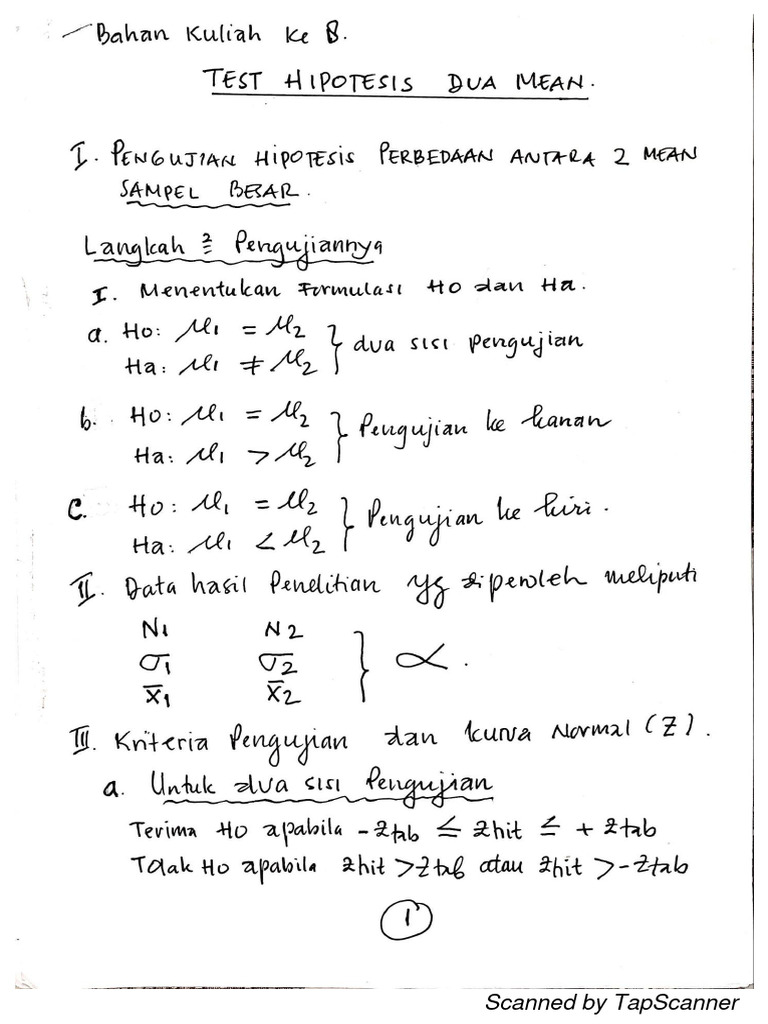 Bahan Kuliah Ke 8.
TEST HIPOTESIS DUA MEAN.
I. PENGUJIAN HIPOTESIS PERBEDAAN ANTARA 2 MEAN
SAMPEL BESAR.
Langkah 2 Pengujiannya
I. Menentukan Formulasi Ho dan Ha.
a. Ho: μ1 = μ2
Ha: μ1 ≠ μ2 } dua sisi pengujian
b. Ho: μ1 = μ2
Ha: μ1 > μ2 } Pengujian ke kanan
C. Ho: μ1 = μ2
Ha: μ1 < μ2 } Pengujian ke kiri.
II. Data hasil Penelitian yg diperoleh meliputi
N1 N2
σ1 σ2 } α.
x̄1 x̄2
III. Kriteria Pengujian dan kurva Normal (Z).
a. Untuk dua sisi Pengujian
Terima Ho apabila -Ztab ≤ Zhit ≤ + Ztab
Tolak Ho apabila Zhit > Ztab atau Zhit > -Ztab
1
Scanned by TapScanner